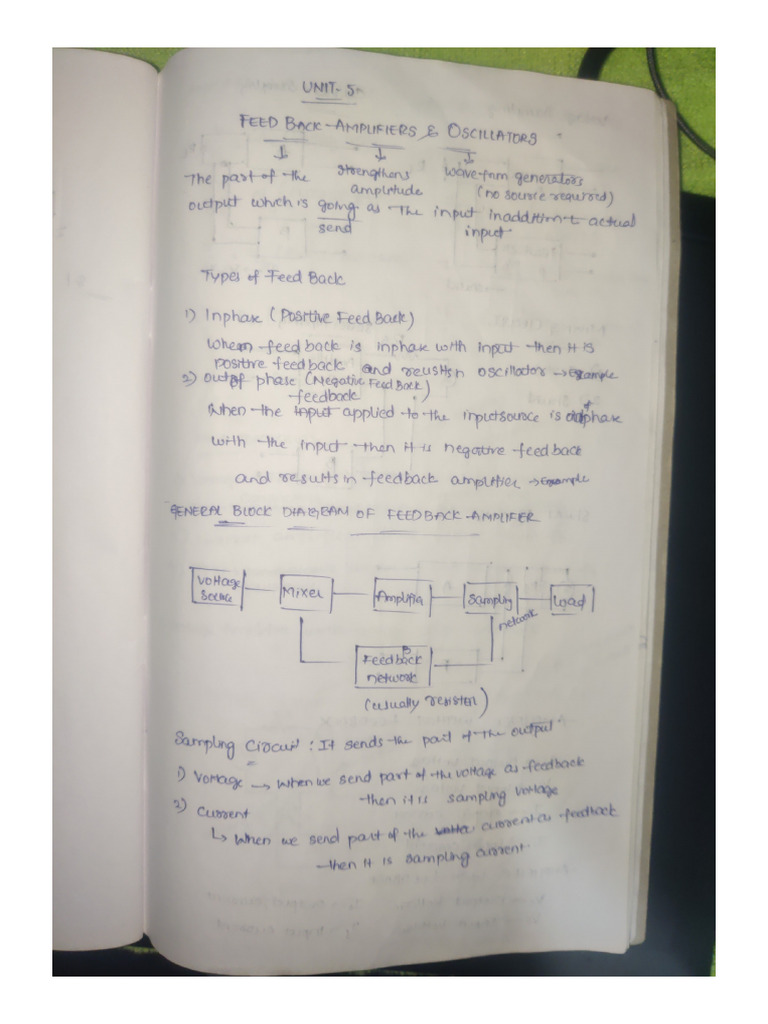 UNIT-5
FEED BACK-AMPLIFIERS & OSCILLATORS
The part of the strengthens wave-fnm generators
amplitude (no source required)
output which is going as the input inaddition-t actual
send input
Types of Feed Back
1) Inphase (Positive Feed Back)
When feedback is inphase with input then it is
positive feedback and reusltsn oscillator → Example
2) Outof phase (Negative Feed Back)
feedback
When the input applied to the inputsource is outphase
with the input then it is negative feedback
and results in feedback amplifier → Example
GENERAL BLOCK DIAGRAM OF FEEDBACK-AMPLIFER
Voltage source
Mixer
Amplifier
Sampling
network
Load
Feedback network
B
(usually resistor)
Sampling Circuit : It sends the part of the output
1) Voltage → When we send part of the voltage as feedback
then it is sampling voltage
2) Current
↳ When we send part of the current as feedback
then it is sampling current.